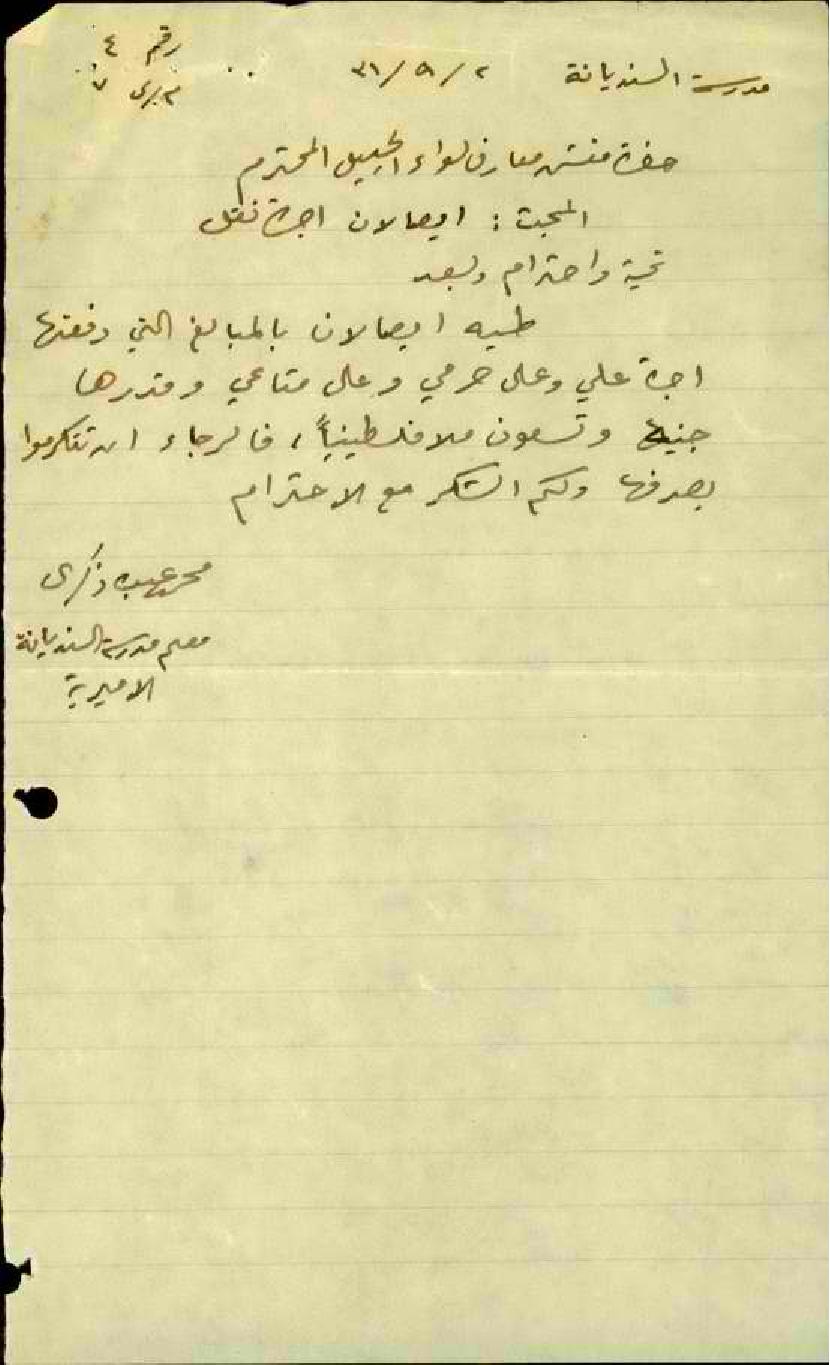 مدرسة السنديانة ٢ / ٩ / ٣١
رقم ٤
٧
حضرة مفتش معارف لواء الجليل المحترم
المبحث : ايصالات اجرة نقل
تحية واحترام وبعد
طيه ايصالات بالمبالغ التي دفعتها
اجرة علي وعلى حرمي وعلى متاعي وقدرها
جنيه وتسعون ملا فلسطينياً، فالرجاء ان تتكرموا
بصرفها ولكم الشكر مع الاحترام
محمد عبده ذكرى
معلم مدرسة السنديانة
الاميرية